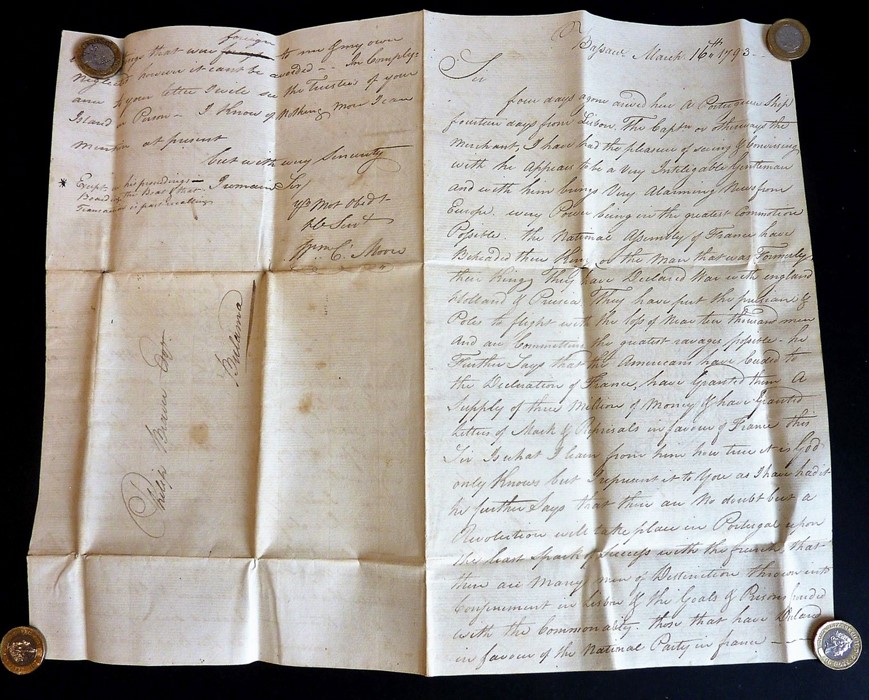 Bassaw March 16th 1793
Sir
four days agone arived here A Portuguese Ship
fourteen days from Lisbon. The Captn or otherways the
Merchant, I have had the pleasure of seeing & Conversing
with he Appears to be a Very Inteligable Gentleman
and with him brings Very Alarming News from
Europe. every Power being in the greatest Commotion
Possible. the National Assembly of France have
Beheaded their King or the Man that was Formerly
their King, They have Declared War with england
Holland & Prusia They have put the prusians &
Poles to flight with the loss of Near ten thousan men
And are Committing the greatest ravages possible. he
Further Says that the Americans have Ceaded to
the Decleration of France, have Granted them A
Supply of three Million of Money & have Granted
Letters of Mark & Reprisals in favour of France this
Sir Is what I learn from him how true it is God
only Knows but I represent it to You as I have had it
he further Says that there are No doubt but a
Revolution will take place in Portugal upon
the least Spark of Sucess with the french, that
there are Many men of Destinction thrown into
Confinement in Lisbon & the Goals & Prisons
with the Commonality. those that have Declared
in favour of the National Party in france
foreign
things that were to me & my own
Neglect however it cant be avoided - In Comply-
ance to your letter I will see the Trustees of your
Island in Person - I Know of Nothing More I can
mention at present
but with every Sincerity
I remain Sir
Yr Most Obedt
Hle Servt
Wm C. Moore
* Except his proceedings
Boarding the Boat & that
Transact is past
Philip Beaver Esqr
Bulama